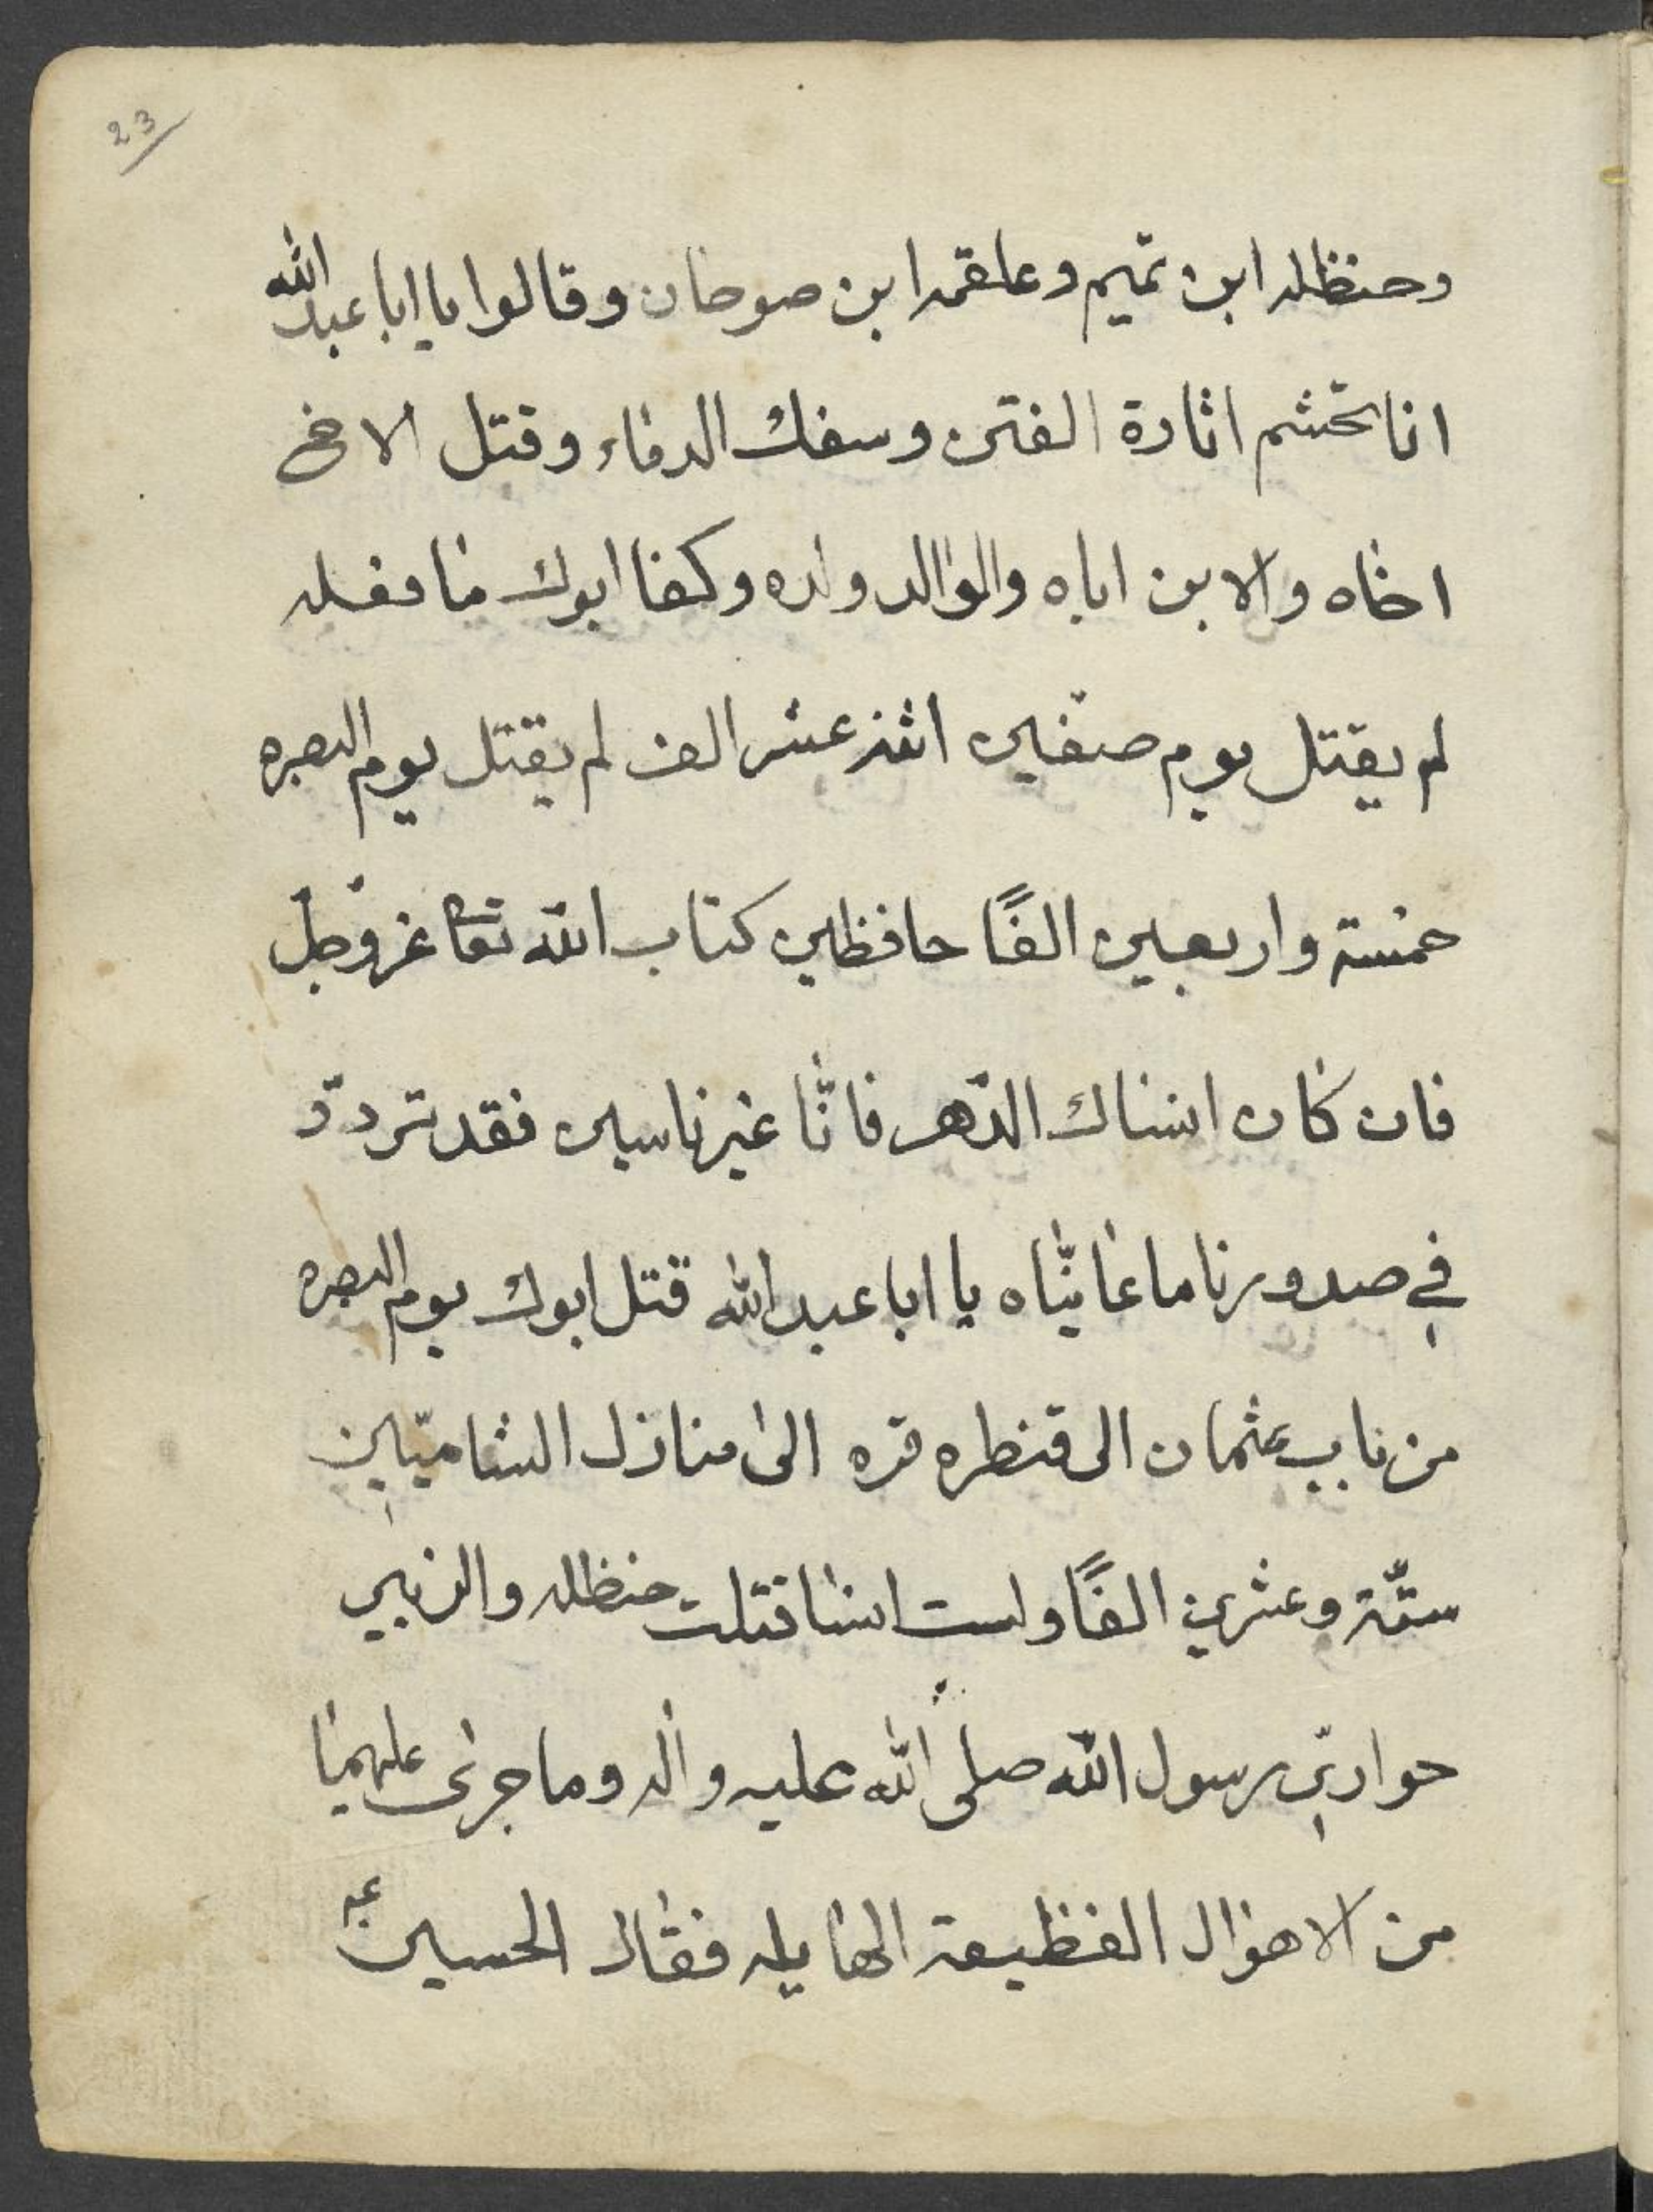 23
وحنظله ابن تميم وعلقمه ابن صوحان وقالوا يا ابا عبد الله
انا نحتشم اثارة الفتن وسفك الدماء وقتل الاخ
اخاه والابن اباه والوالد ولده وكفا ابوك ما فعله
لم يقتل يوم صفين اثنى عشر الف لم يقتل يوم البصره
خمسة واربعين الفًا حافظين كتاب الله تعا عز وجلّ
فان كان انساك الدّهر فانّا غير ناسين فقد تردّد
في صدورنا ما عاينّاه يا ابا عبد الله قتل ابوك يوم البصره
من باب عثمان الى قنطره قره الى منازل الشاميّين
ستّة وعشرين الفًا ولست انسا قتلت حنظله والزبير
حواريّ رسول الله صلى الله عليه واله وما جرى عليهما
من الاهوال الفظيعة الهايله فقال الحسين عه